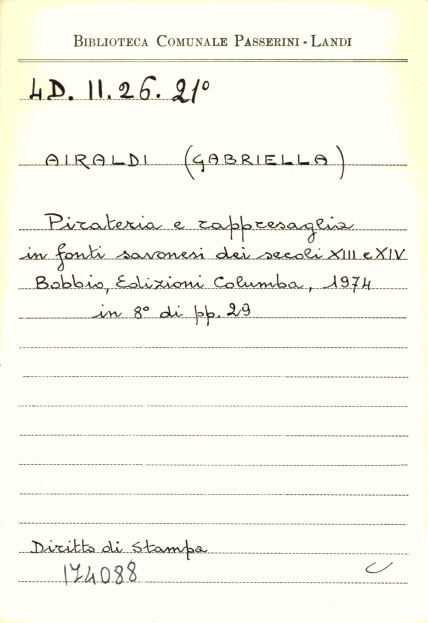 BIBLIOTECA COMUNALE PASSERINI - LANDI
4D. II. 26. 21°
AIRALDI (GABRIELLA)
Pirateria e rappresaglia
in fonti savonesi dei secoli XIII e XIV
Bobbio, Edizioni Columba, 1974
in 8° di pp. 29
Diritto di Stampa
174088